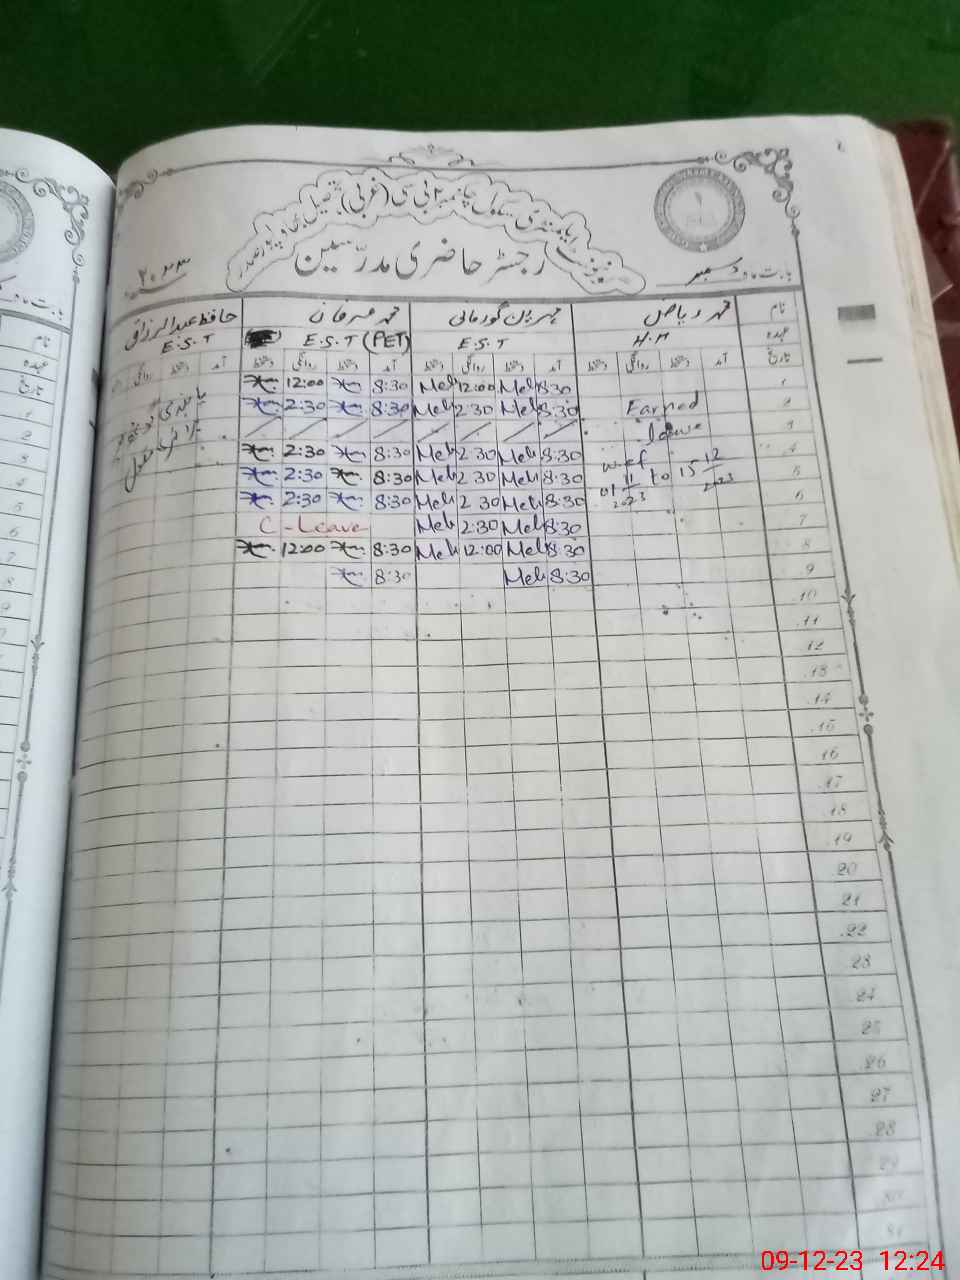 گورنمنٹ ایلیمنٹری سکول
(غربی) تحصیل
رجسٹر حاضری مدرسین
۱
بابت ماہ دسمبر
۲۰۲۳
نام محمد ریاض محمد عرفان حافظ عبدالرزاق
عہدہ H.M E.S.T E.S.T (PET) E.S.T
تاریخ آمد دستخط روانگی دستخط آمد دستخط روانگی دستخط آمد دستخط روانگی دستخط آمد دستخط روانگی
1 8:30 Meh 12:00 Meh 8:30 12:00
2 Earned 8:30 Meh 2:30 Meh 8:30 2:30
3 leave
4 8:30 Meh 2:30 Meh 8:30 2:30
5 w.e.f 01 11 2023 to 15 12 2023 8:30 Meh 2:30 Meh 8:30 2:30
6 8:30 Meh 2:30 Meh 8:30 2:30
7 8:30 Meh 2:30 Meh C-Leave
8 8:30 Meh 12:00 Meh 8:30 12:00
9 8:30 Meh 8:30
10
11
12
13
14
15
16
17
18
19
20
21
22
23
24
25
26
27
28
29
30
31
نام
عہدہ
تاریخ
1
2
3
5
6
7
8
9
09-12-23 12:24